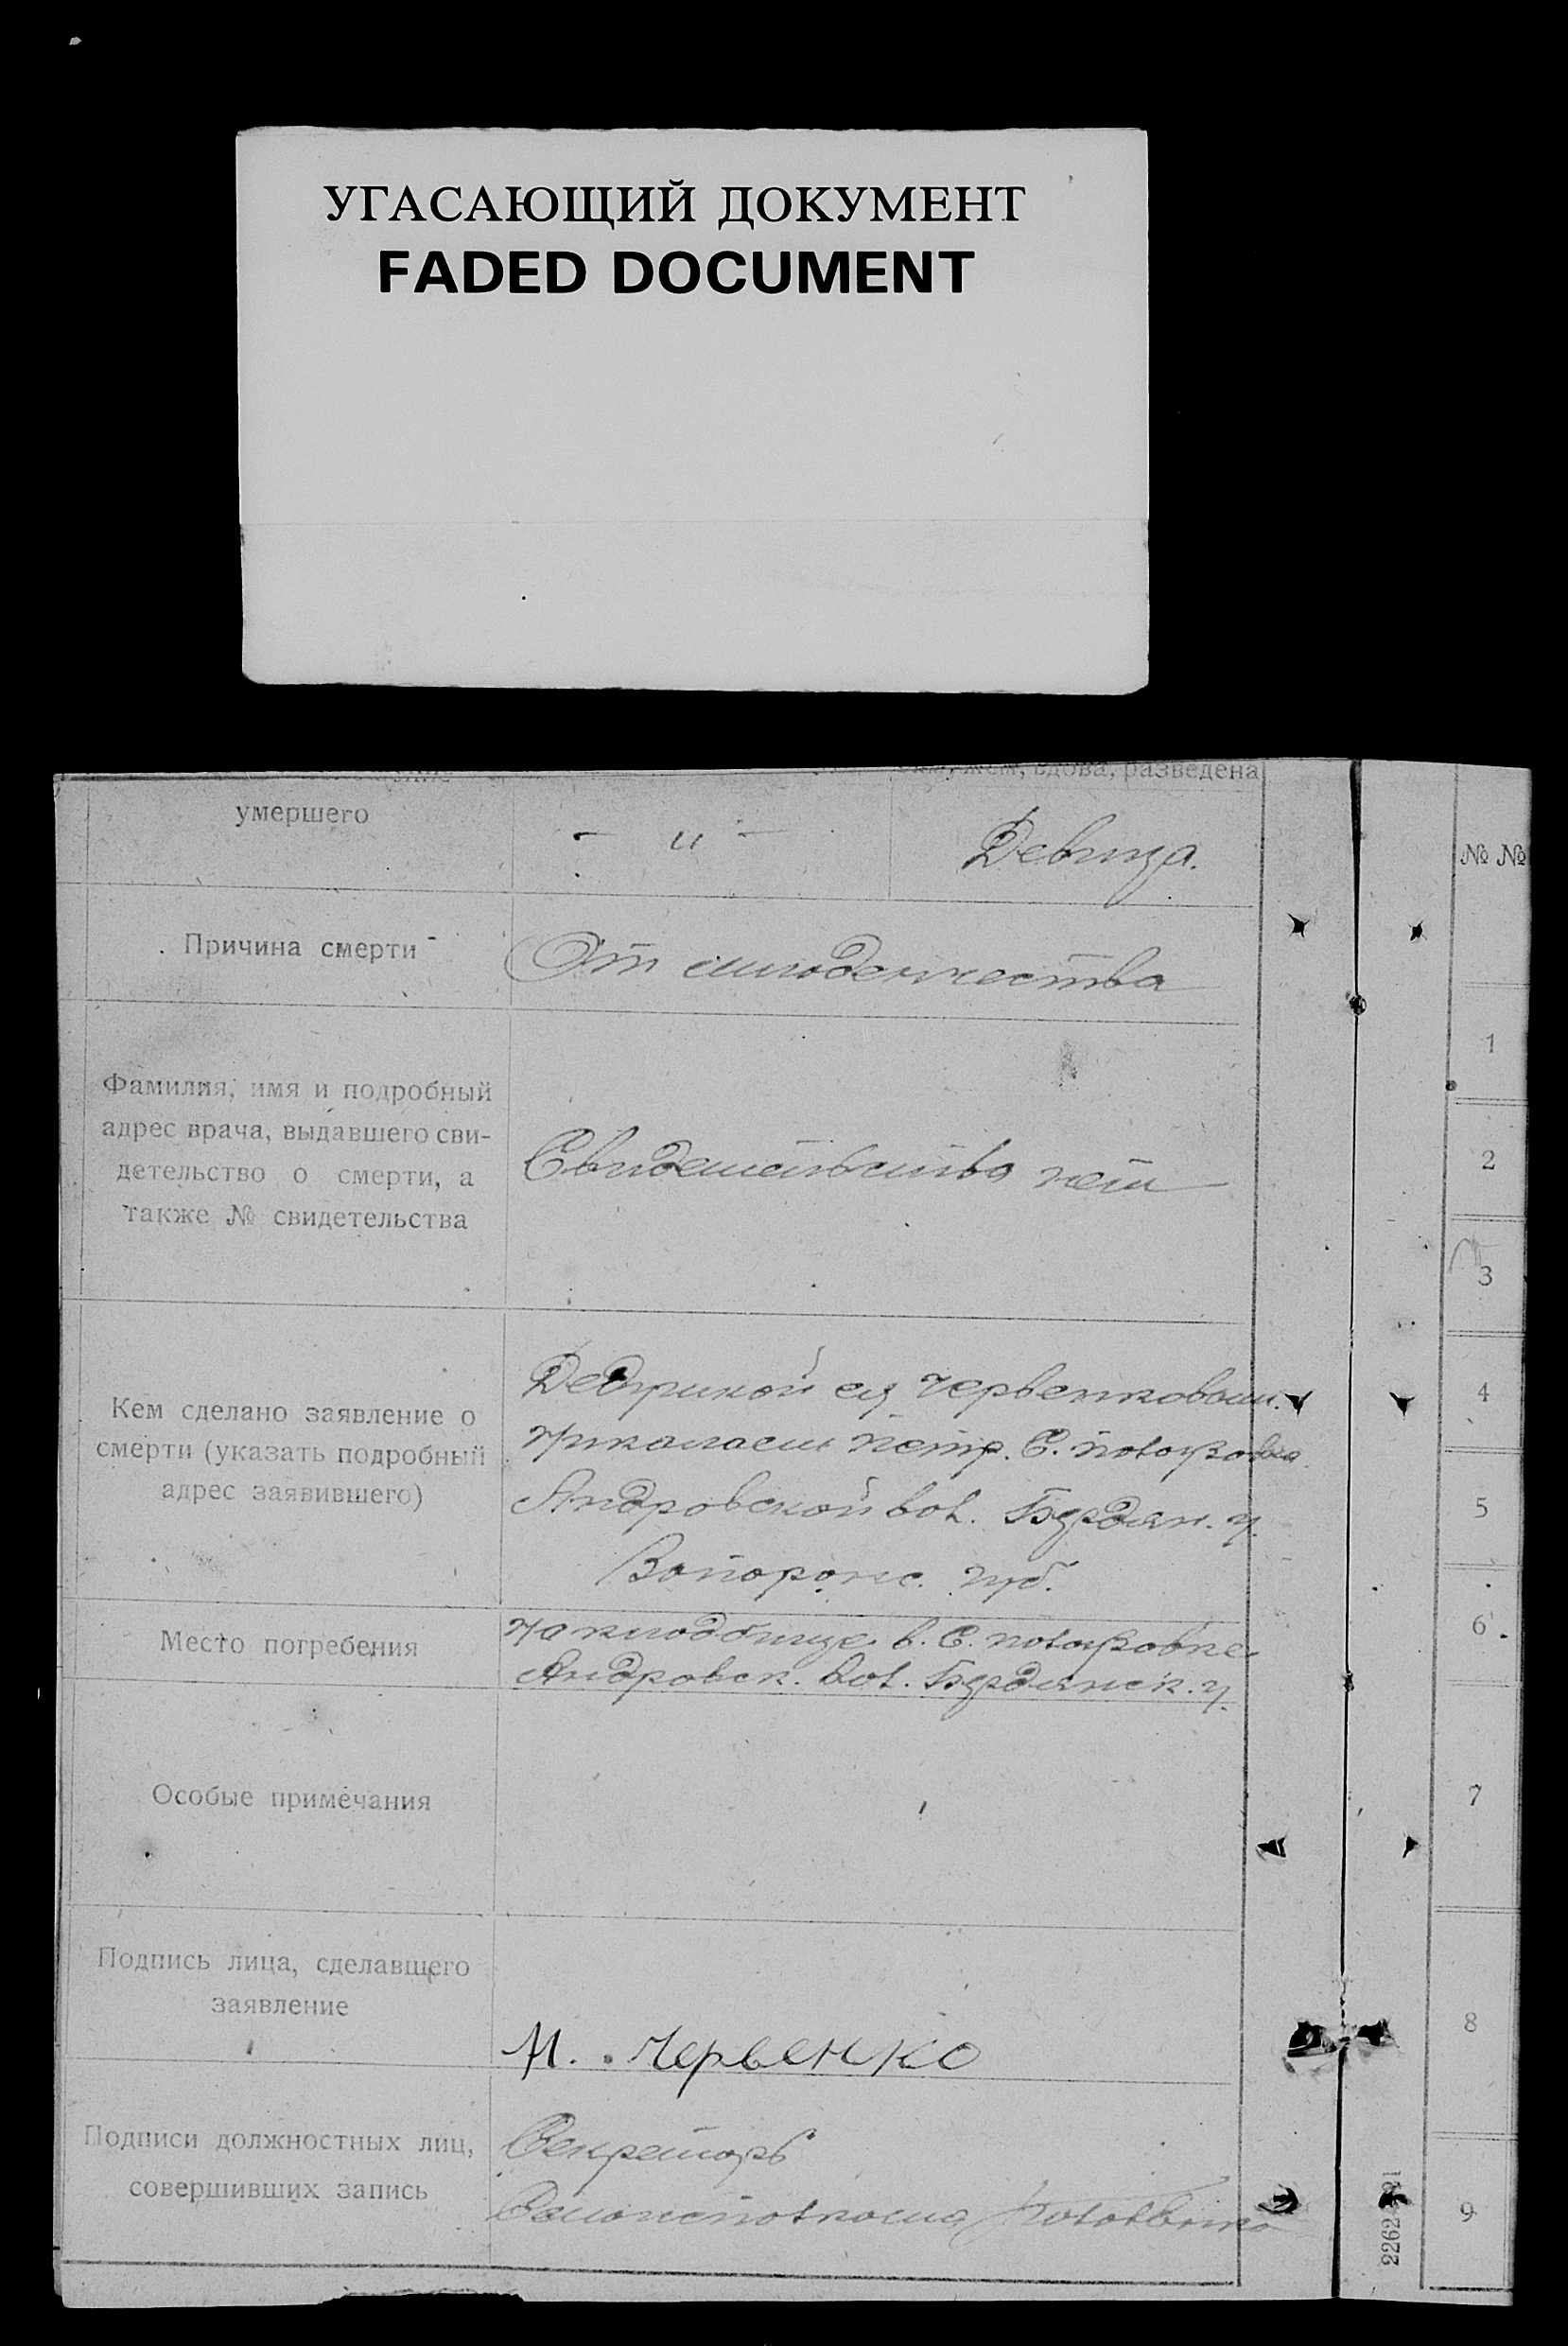 УГАСАЮЩИЙ ДОКУМЕНТ
FADED DOCUMENT
вдова, разведена
умершего
— „ —
Девица.
Причина смерти
От младенчества
Фамилия, имя и подробный
адрес врача, выдавшего сви-
детельство о смерти, а
также № свидетельства
Свидетельства нет
Кем сделано заявление о
смерти (указать подробный
адрес заявившего)
Дедушкой ея Червенковым
Николаем Петр. С.
Андровской вол. Бердян. у.
Запорож. губ.
Место погребения
На кладбище в. С.
Андровск. вол. Бердянск. у.
Особые примечания
Подпись лица, сделавшего
заявление
Н. Червенко
Подписи должностных лиц,
совершивших запись
Секретарь
№ №
1
2
3
4
5
6
7
8
9